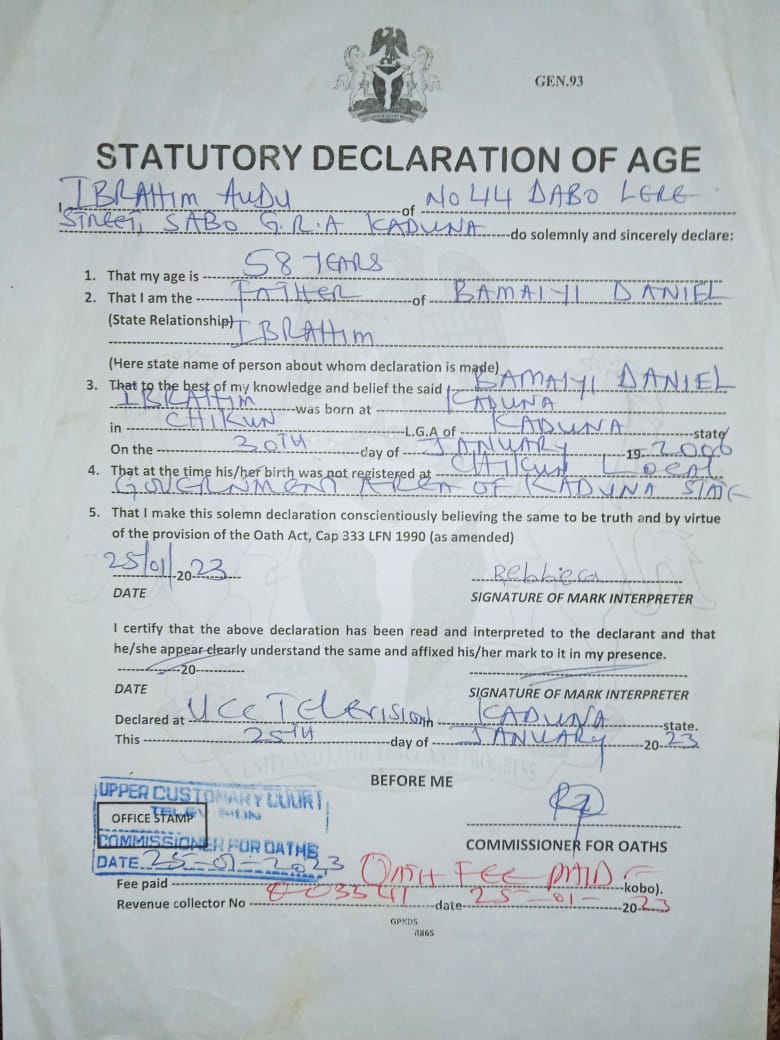 GEN.93
STATUTORY DECLARATION OF AGE
I IBRAHIM AUDU of NO 44 DABO LERE
STREET, SABO G.R.A KADUNA do solemnly and sincerely declare:
1. That my age is 58 YEARS
2. That I am the FATHER of BAMAIYI DANIEL
(State Relationship) IBRAHIM
(Here state name of person about whom declaration is made)
3. That to the best of my knowledge and belief the said BAMAIYI DANIEL
IBRAHIM was born at KADUNA
in CHIKUN L.G.A of KADUNA state
On the 30TH day of JANUARY 19 2006
4. That at the time his/her birth was not registered at CHIKUN LOCAL
GOVERNMENT AREA OF KADUNA STATE
5. That I make this solemn declaration conscientiously believing the same to be truth and by virtue
of the provision of the Oath Act, Cap 333 LFN 1990 (as amended)
25/01/ 20 23
DATE SIGNATURE OF MARK INTERPRETER
I certify that the above declaration has been read and interpreted to the declarant and that
he/she appear clearly understand the same and affixed his/her mark to it in my presence.
20
DATE SIGNATURE OF MARK INTERPRETER
Declared at UCC Television KADUNA state.
This 25TH day of JANUARY 20 23
BEFORE ME
UPPER CUSTOMARY COURT
OFFICE STAMP
COMMISSIONER FOR OATHS
DATE 25-01-2023
COMMISSIONER FOR OATHS
Fee paid OATH FEE PAID kobo).
Revenue collector No date 25-01- 20 23
GPKDS